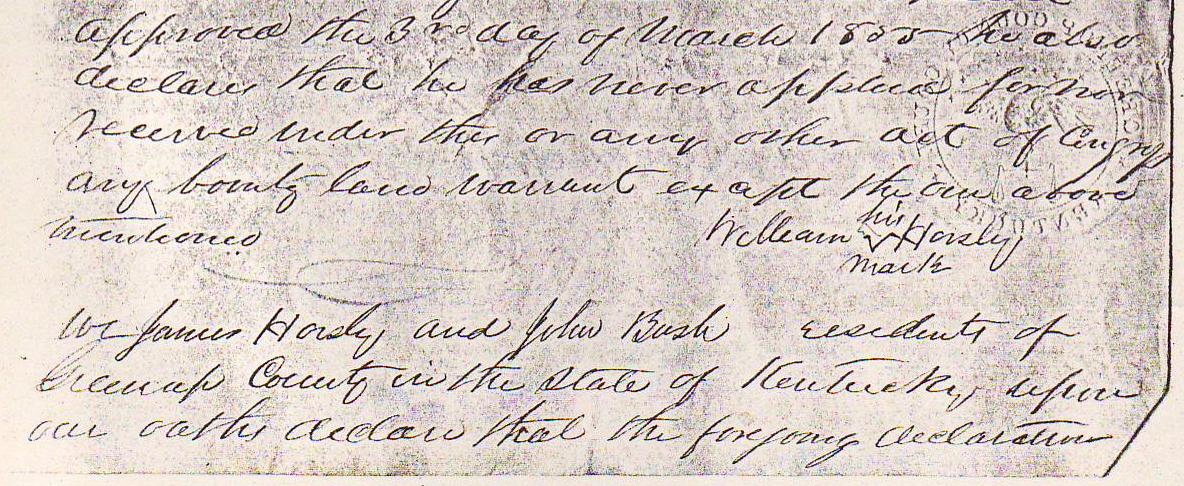 approved the 3rd day of March 1855 he also
declares that he has never applied for nor
received under this or any other act of Congress
any bounty land warrant except the one above
mentioned
William his Horsly
mark
We James Horsly and John Bush residents of
Greenup County in the State of Kentucky upon
our oaths declare that the foregoing declaration